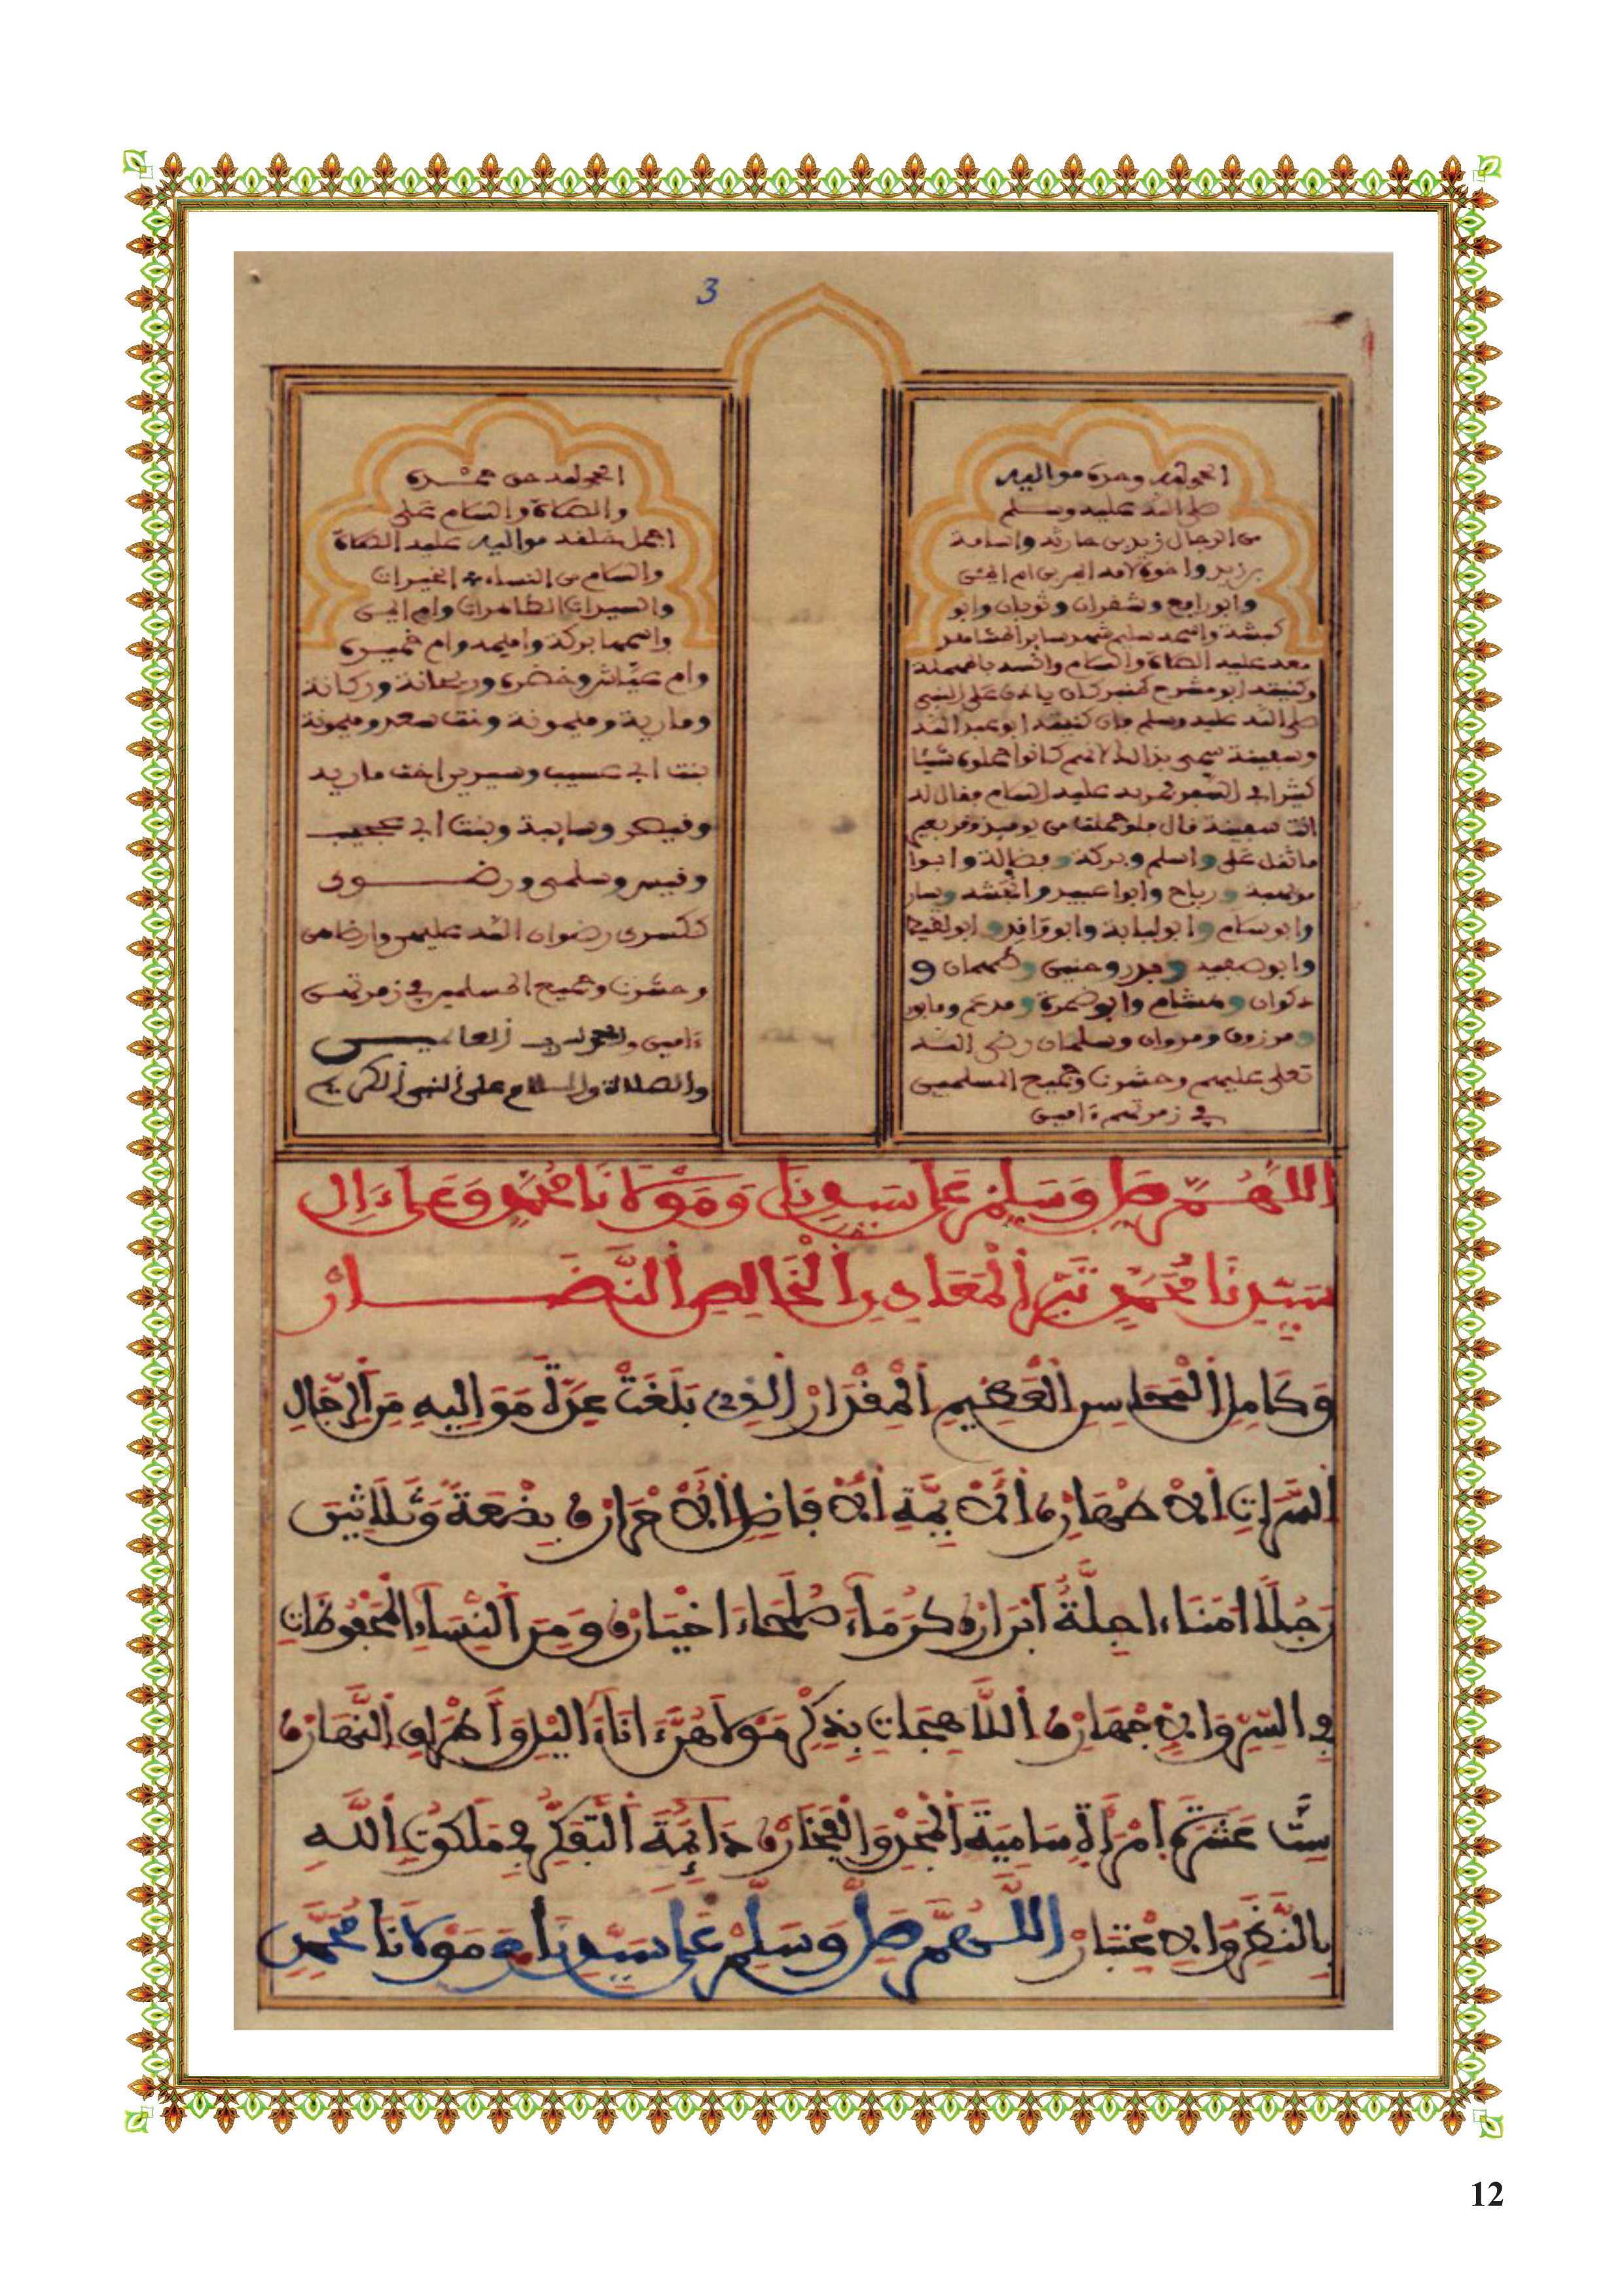 3
الحمد لله وحده مواليه
صلى الله عليه وسلم
من الرجال زيد بن حارثة وأسامة
بن زيد وأخوه لأمه أيمن بن أم أيمن
وأبو رافع وشقران وثوبان وأبو
كبشة واسمه سليم شهد بدرا
معه عليه الصلاة والسلام وأنسة
وكنيته أبو مشرح كان يأذن على النبي
صلى الله عليه وسلم كنيته أبو عبد الله
وسفينة سمي بذلك لأنهم كانوا حملوه شيئا
كثيرا في السفر عليه السلام فقال له
أنت سفينة قال فلو حملت من يومئذ وقر بعير
ما ثقل علي وأسلم وبركة وفضالة وأبوا
مويهبة ورباح وأبوا عبيد وأنجشة ويسار
وأبو سلام وأبو لبابة وأبو واقد وأبو لقيط
وأبو ضميرة وبدر وحنين وطهمان و
ذكوان وهشام وأبو ضمرة ومدعم ومابور
ومرزوق ومروان وسلمان رضي الله
تعلى عليهم وحشرنا وجميع المسلمين
في زمرتهم ءامين
الحمد لله حق حمده
والصلاة والسلام على
أجمل خلقه مواليه عليه الصلاة
والسلام من النساء الخيرات
والسيرات الطاهرات وام أيمن
واسمها بركة واميمة وام ضميرة
وام عياش وخضرة وريحانة وركانة
ومارية وميمونة بنت سعد وميمونة
بنت ابي عسيب وسيرين اخت مارية
وقيصر وسايبة وبنت ابي
وقيسر وسلمى ورضوى
رضوان الله عليهن وأرضاهن
وحشرنا وجميع المسلمين في زمرتهن
ءامين والحمد لله رب العالمين
والصلاة والسلام على النبي الكريم
اللَّهُمَّ صَلِّ وَسَلِّمْ عَلَى سَيِّدِنَا وَمَوْلَانَا مُحَمَّدٍ وَعَلَى ءَالِ
سَيِّدِنَا مُحَمَّدٍ تِبْرِ الْمَعَادِنِ الْخَالِصِ النُّضَارْ
وَكَامِلِ الْمَحَاسِنِ الْعَظِيمِ الْمِقْدَارْ الذِي بَلَغَتْ عِدَّةُ مَوَالِيهِ مِنَ الرِّجَالِ
السَّرَاتِ الْأَطْهَارْ الْأَيِمَّةِ الْأَفَاضِلِ الْأَحْرَارْ بِضْعَةً وَثَلَاثِينَ
رَجُلًا امَنَاءَ اجِلَّةً أَبْرَارْ كُرَمَاءَ صُلَحَاءَ اخْيَارْ وَمِنَ النِّسَاءِ الْمَحْفُوظَاتِ
فِي السِّرِّ وَالْإِجْهَارْ اللَّاهِجَاتِ بِذِكْرِ مَوْلَاهُنَّ ءَانَاءَ اليْلِ وَأَطْرَافِ النَّهَارْ
سِتَّ عَشْرَةَ امْرَأَةً سَامِيَةَ الْمَجْدِ وَالْفَخَارْ دَائِمَةَ التَّفَكُّرِ فِي مَلَكُوتِ اللَّهِ
بِالنَّظَرِ وَالْإِعْتِبَارْ اللَّهُمَّ صَلِّ وَسَلِّمْ عَلَى سَيِّدِنَا وَمَوْلَانَا مُحَمَّدٍ
12